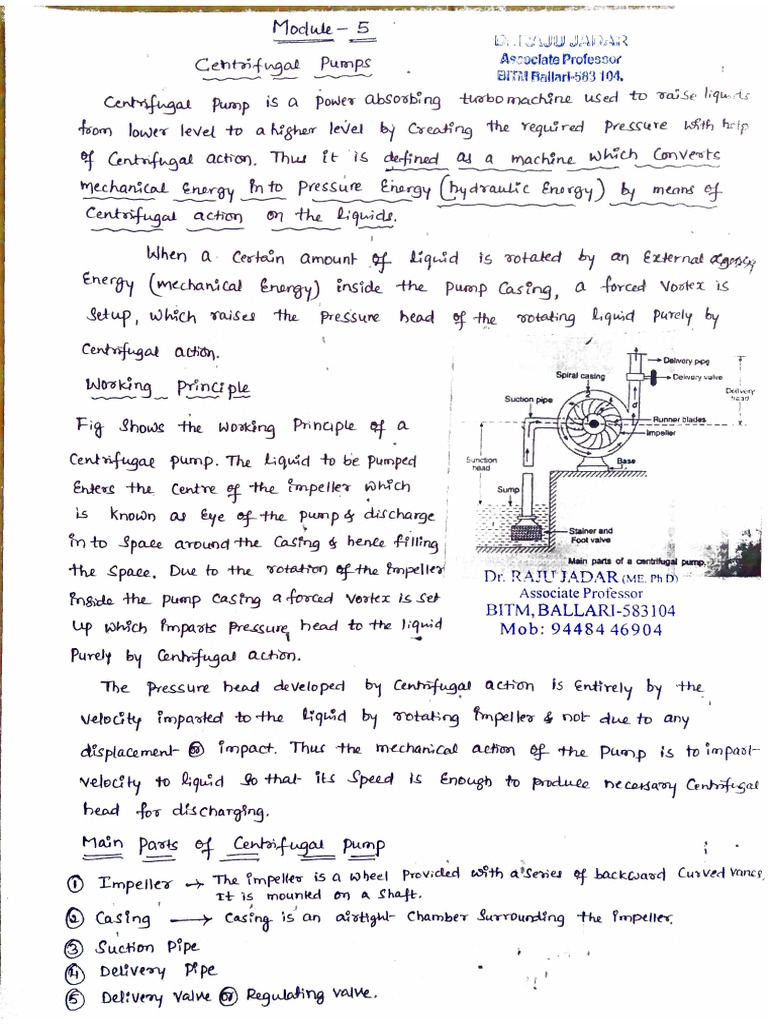 Module - 5
Dr. RAJU JADAR
Associate Professor
BITM Ballari-583 104.
Centrifugal Pumps
Centrifugal Pump is a power absorbing turbomachine used to raise liquids
from lower level to a higher level by Creating the required Pressure with help
of Centrifugal action. Thus it is defined as a machine which Converts
mechanical Energy in to Pressure Energy (hydraulic Energy) by means of
Centrifugal action on the liquids.
When a Certain amount of liquid is rotated by an External agency
Energy (mechanical Energy) inside the pump Casing, a forced Vortex is
Setup, which raises the pressure head of the rotating liquid Purely by
Centrifugal action.
Working Principle
Fig Shows the working Principle of a
Centrifugae pump. The liquid to be Pumped
Enters the Centre of the impeller which
is known as Eye of the pump & discharge
in to Space around the Casing & hence filling
the Space. Due to the rotation of the impeller
inside the pump casing a forced Vortex is set
up which imparts pressure head to the liquid
Purely by Centrifugal action.
Delivery pipe
Delivery valve
Delivery
head
Spiral casing
Suction pipe
Runner blades
Impeller
Base
Sunction
head
Sump
Stainer and
Foot valve
Main parts of a centrifugal pump.
Dr. RAJU JADAR (ME. Ph D)
Associate Professor
BITM, BALLARI-583104
Mob: 94484 46904
The Pressure head developed by Centrifugal action is Entirely by the
velocity imparted to the liquid by rotating impeller & not due to any
displacement or impact. Thus the mechanical action of the pump is to impart
velocity to liquid so that its Speed is Enough to produce necessary Centrifugal
head for discharging.
Main Parts of Centrifugal Pump
① Impeller → The impeller is a wheel Provided with a Series of backward Curved vanes,
It is mounted on a Shaft.
② Casing → Casing is an airtight Chamber Surrounding the impeller.
③ Suction Pipe
④ Delivery Pipe
⑤ Delivery Valve or Regulating valve.